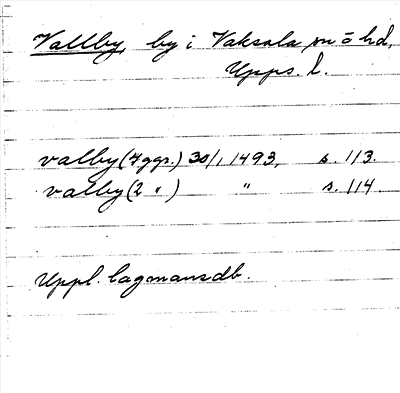 Vallby, by i Vaksala sn o hd,
Upps. l.
valby (4 ggr.) 30/1 1493, s. 113.
valby (2 ") " s. 114.
Uppl. lagmansdb.